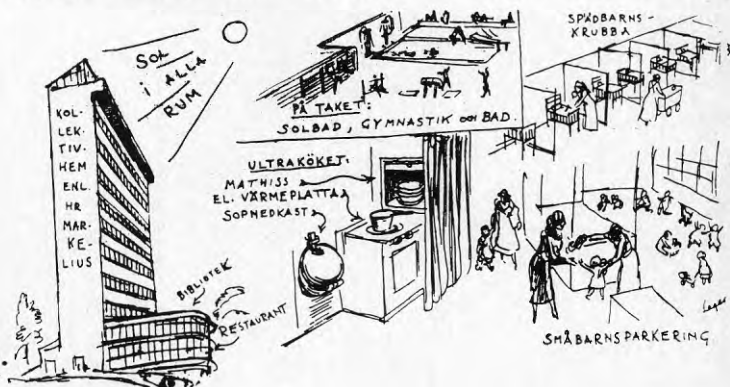 SOL
i ALLA
RUM
KOL-
LEK-
TIV-
HEM
ENL.
HR
MAR-
KE-
LIUS
BIBLIOTEK
RESTAURANT
PÅ TAKET:
SOLBAD, GYMNASTIK OCH BAD.
ULTRAKÖKET:
MATHISS
EL. VÄRMEPLATTA
SOPNEDKAST
SPÄDBARNS-
KRUBBA
SMÅBARNSPARKERING